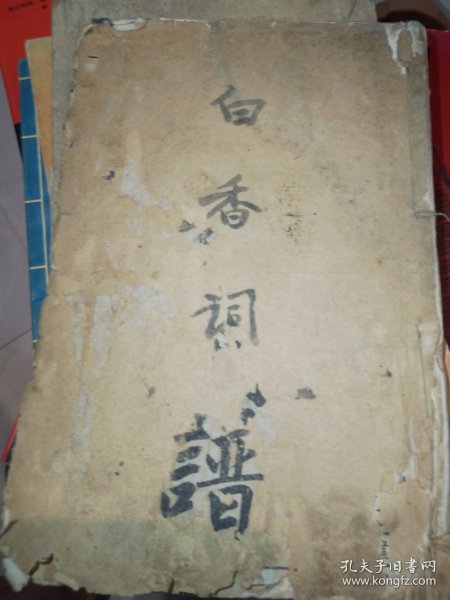 白香词譜
孔夫子旧书网
www.kongfz.com